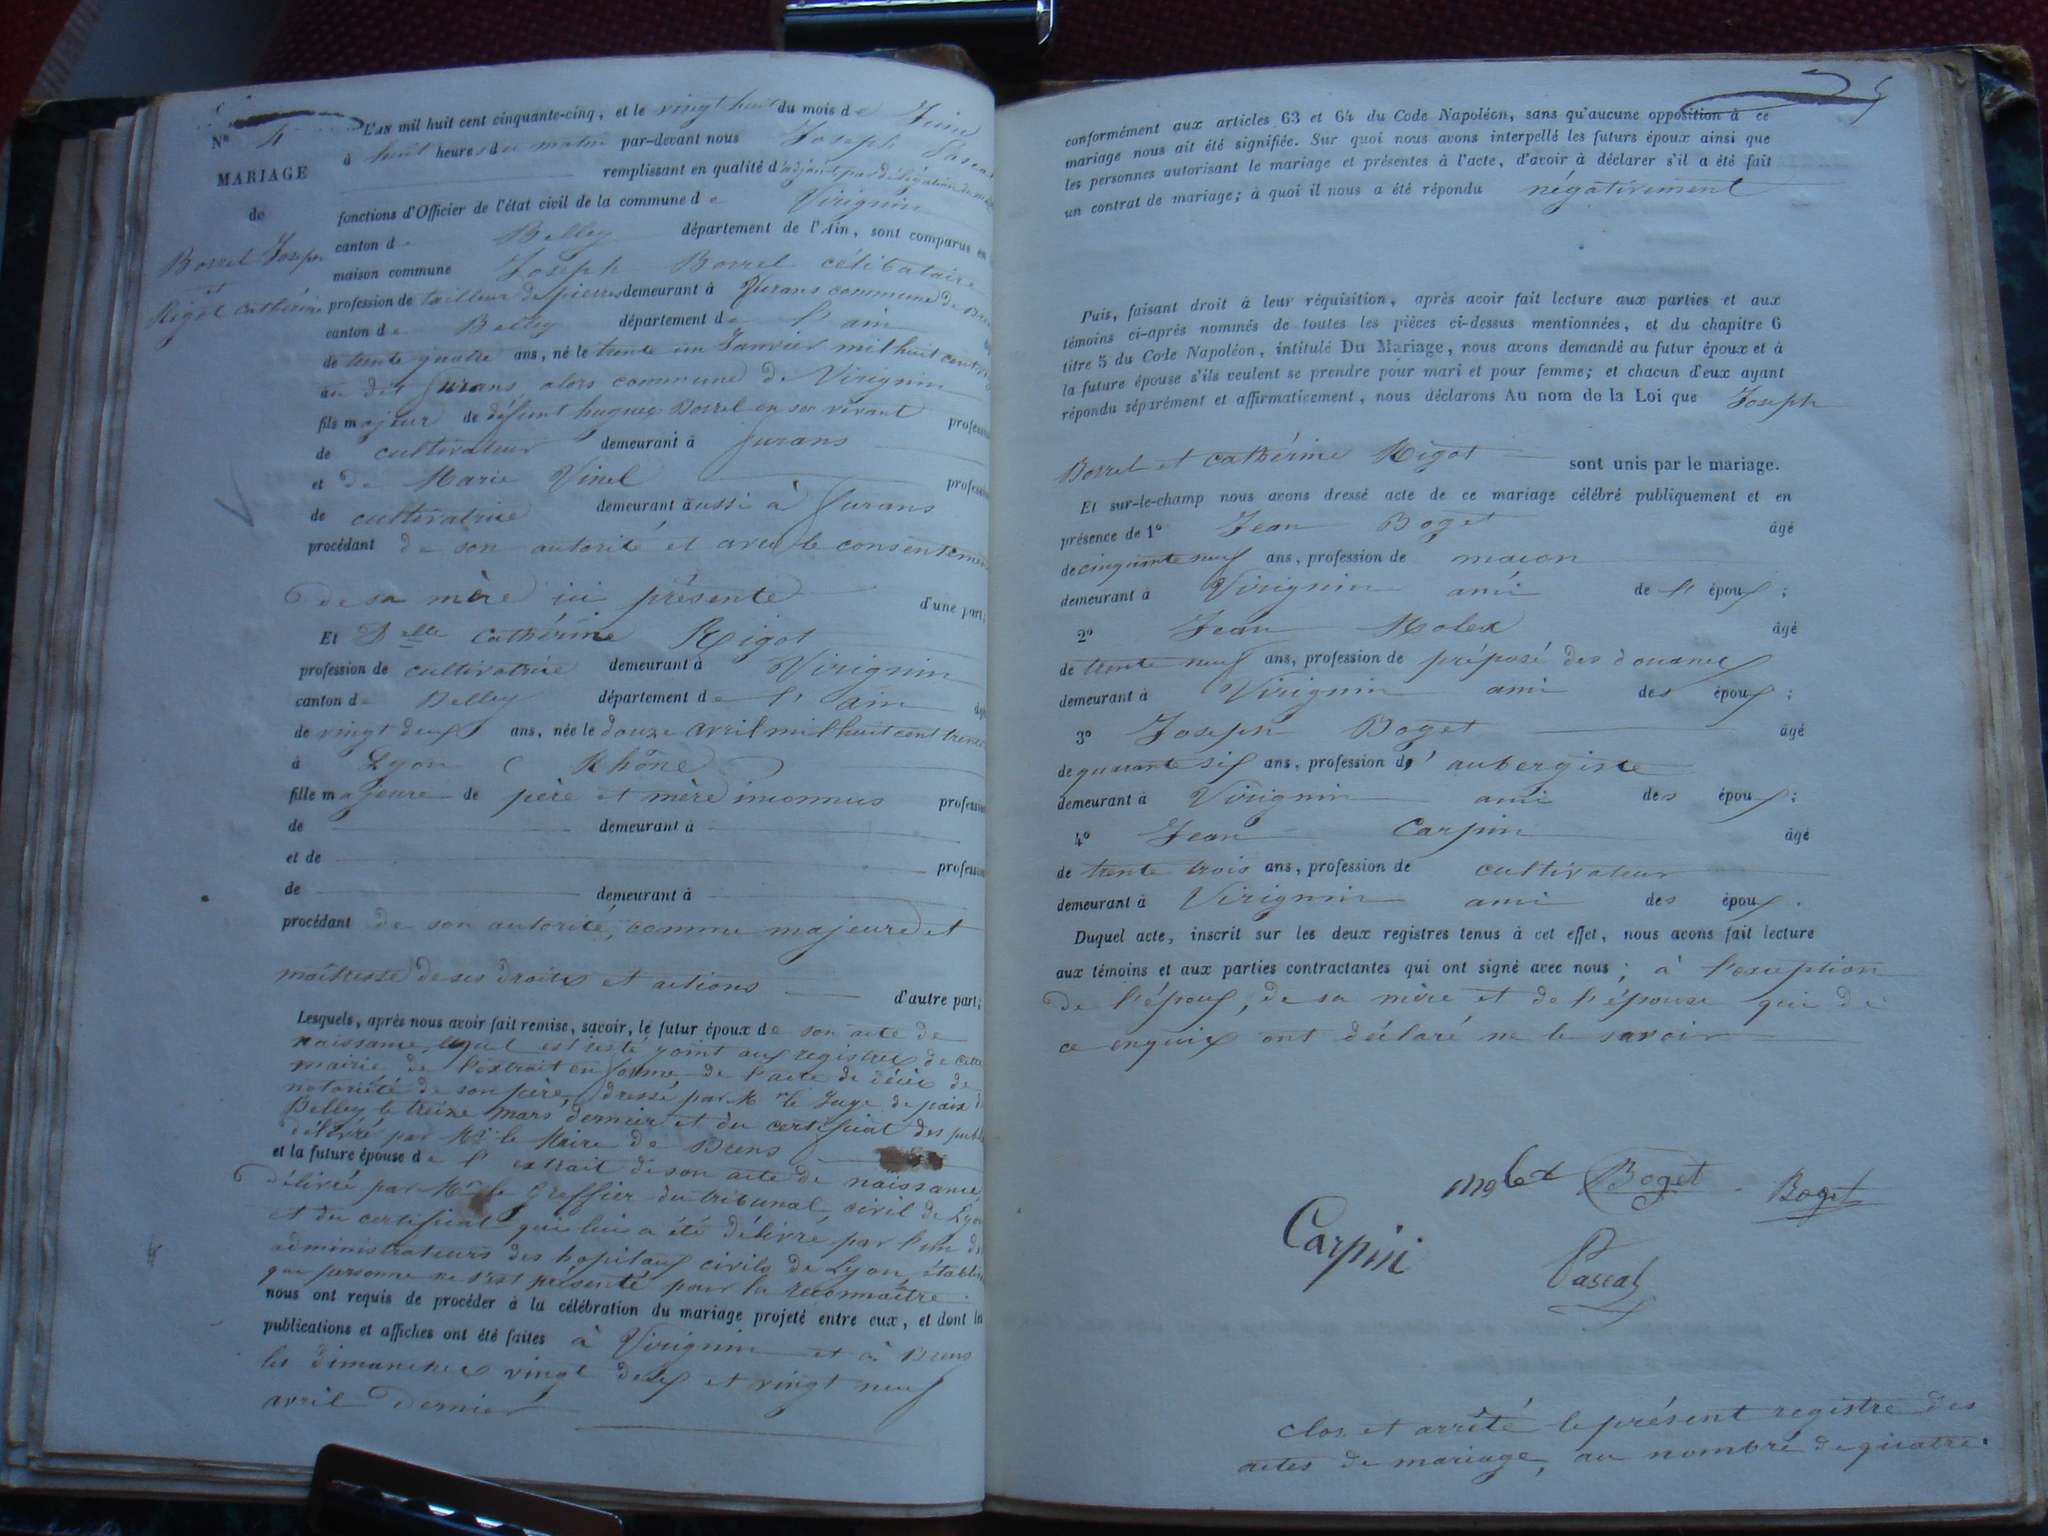 Nº 4
MARIAGE
de
Borrel Joseph
et
Rigot Cathérine
L'AN mil huit cent cinquante-cinq, et le vingt huit du mois de Juin
à huit heures du matin par-devant nous Joseph Pascal
remplissant en qualité d'adjoint par délégation du maire
fonctions d'Officier de l'état civil de la commune de Virignin
canton de Belley département de l'Ain, sont comparus en
maison commune Joseph Borrel célibataire
profession de tailleur de pierres demeurant à Jurans commune de Brens
canton de Belley département de l'ain
de trente quatre ans, né le trente un Janvier mil huit cent
au dit Jurans, alors commune de Virignin
fils majeur de défunt hugues Borrel en son vivant profession
de cultivateur demeurant à Jurans
et de Marie Vinel profession
de cultivatrice demeurant aussi à Jurans
procédant de son autorité et avec le consentement
de sa mère ici présente d'une part;
Et Delle Cathérine Rigot
profession de cultivatrice demeurant à Virignin
canton de Belley département de l'ain âgée
de vingt deux ans, née le douze avril mil huit cent trente
à Lyon (Rhône)
fille majeure de père et mère inconnus profession
de demeurant à
et de profession
de demeurant à
procédant de son autorité, comme majeure et
maîtresse de ses droits et actions d'autre part;
Lesquels, après nous avoir fait remise, savoir, le futur époux de son acte de
naissance, lequel est resté joint aux registres de cette
mairie de l'extrait en forme de l'acte de décès de
notoriété de son père, dressé par Mr le Juge de paix de
Belley le treize mars dernier et du certificat des publ
délivré par Mr le Maire de Brens
et la future épouse de l'extrait de son acte de naissance
délivré par Mr le Greffier du tribunal civil de Lyon
et du certificat qui lui a été délivré par l'un des
administrateurs des hopitaux civils de Lyon, établis
que personne ne s'est présenté pour la reconnaître.
nous ont requis de procéder à la célébration du mariage projeté entre eux, et dont les
publications et affiches ont été faites à Virignin et à Brens
les dimanches vingt deux et vingt neuf
avril dernier
5
conformément aux articles 63 et 64 du Code Napoléon, sans qu'aucune opposition à ce
mariage nous ait été signifiée. Sur quoi nous avons interpellé les futurs époux ainsi que
les personnes autorisant le mariage et présentes à l'acte, d'avoir à déclarer s'il a été fait
un contrat de mariage; à quoi il nous a été répondu négativement
Puis, faisant droit à leur réquisition, après avoir fait lecture aux parties et aux
témoins ci-après nommés de toutes les pièces ci-dessus mentionnées, et du chapitre 6
titre 5 du Code Napoléon, intitulé Du Mariage, nous avons demandé au futur époux et à
la future épouse s'ils veulent se prendre pour mari et pour femme; et chacun d'eux ayant
répondu séparément et affirmativement, nous déclarons Au nom de la Loi que Joseph
Borrel et cathérine Rigot sont unis par le mariage.
Et sur-le-champ nous avons dressé acte de ce mariage célébré publiquement et en
présence de 1º Jean Boget âgé
de cinquante neuf ans, profession de macon
demeurant à Virignin ami de l'époux;
2º Jean Molex âgé
de trente neuf ans, profession de préposé des douanes
demeurant à Virignin ami des époux;
3º Joseph Boget âgé
de quarante six ans, profession d'aubergiste
demeurant à Virignin ami des époux;
4º Jean Carpin âgé
de trente trois ans, profession de cultivateur
demeurant à Virignin ami des époux.
Duquel acte, inscrit sur les deux registres tenus à cet effet, nous avons fait lecture
aux témoins et aux parties contractantes qui ont signé avec nous; à l'exception
de l'époux, de sa mère et de l'épouse qui de
ce enquis ont déclaré ne le savoir
molex Boget Boget
Carpin
Pascal
Clos et arrêté le présent registre des
actes de mariage, au nombre de quatre.